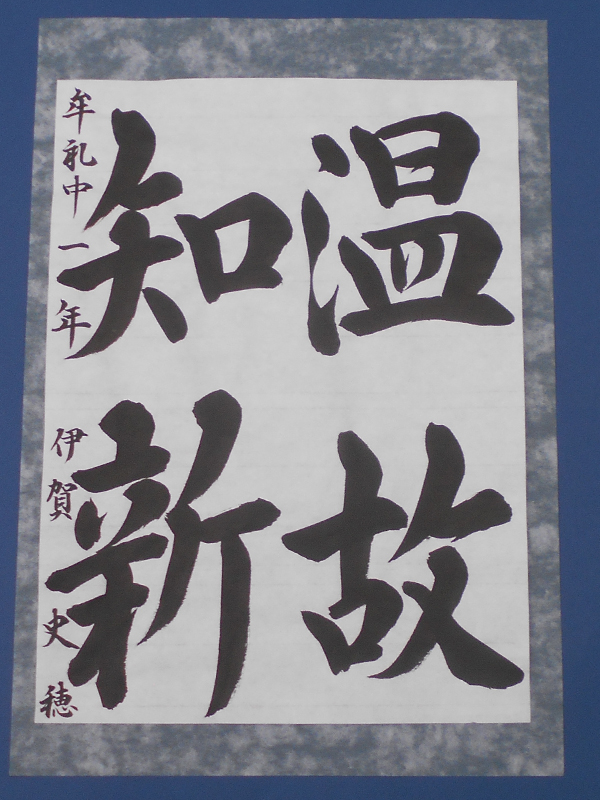 温故
知新
牟礼中一年 伊賀史穂